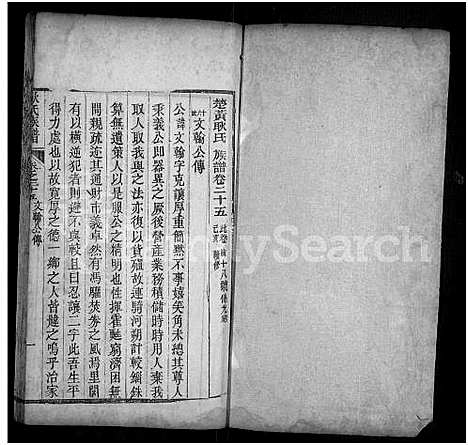 楚黃耿氏族譜卷三十五
文翰公傳
公諱文翰字克讓厚重簡默不事嬉笑角未總其尊人
秉義公即器異之厥後營產業務積儲時時用人棄我
取人取我與之法亦復以其貿殖故連騎河朔計較緇銖
算無遺策人以是服公之精明也性揮霍甦窮濟困無
間親疎迹其通財市義卓然有馮驩焚券之風焉里閭
有以橫逆犯者則避不與較且曰忍讓二字此吾生平
得力處也以故寬厚之德一鄉之人皆健之嗚乎治家
耿氏族譜
文翰公傳
一
FamilySearch